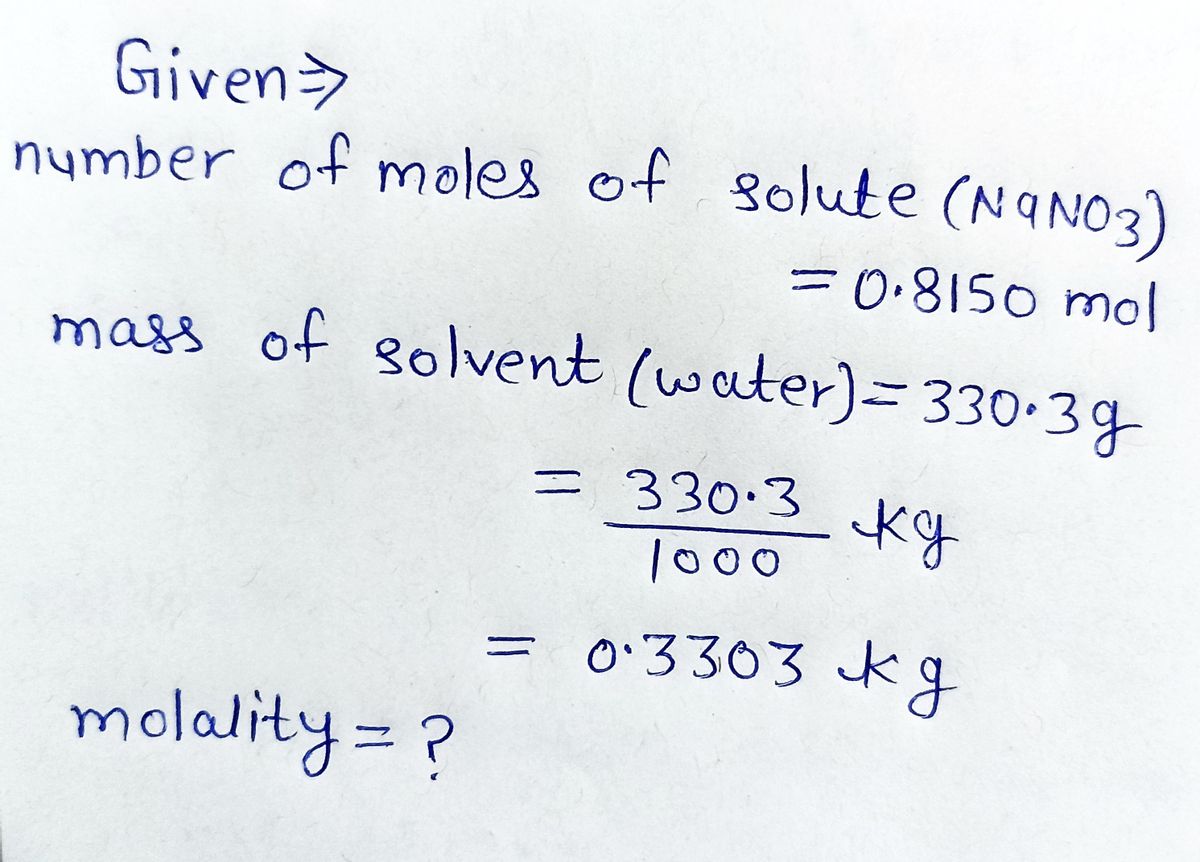 Given⇒
number of moles of solute (NaNO3)
= 0.8150 mol
mass of solvent (water) = 330.3g
= 330.3/1000 kg
= 0.3303 kg
molality = ?